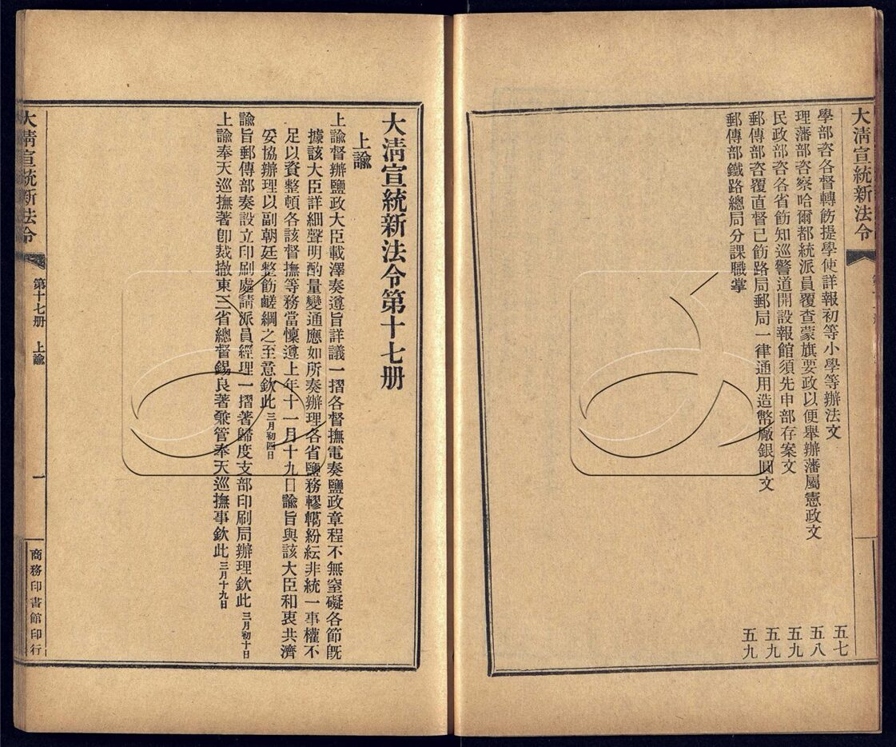 大淸宣統新法令
學部咨各督轉飭提學使詳報初等小學等辦法文
五七
理藩部咨察哈爾都統派員覆查蒙旗要政以便舉辦藩屬憲政文
五八
民政部咨各省飭知巡警道開設報館須先申部存案文
五九
郵傳部咨覆直督已飭路局郵局一律通用造幣廠銀圓文
五九
郵傳部鐵路總局分課職掌
五九
大淸宣統新法令第十七册
上諭
上諭督辦鹽政大臣載澤奏遵旨詳議一摺各督撫電奏鹽政章程不無窒礙各節旣
據該大臣詳細聲明酌量變通應如所奏辦理各省鹽務轇轕紛紜非統一事權不
足以資整頓各該督撫等務當懍遵上年十一月十九日諭旨與該大臣和衷共濟
妥協辦理以副朝廷整飭鹺綱之至意欽此三月初四日
諭旨郵傳部奏設立印刷處請派員經理一摺著歸度支部印刷局辦理欽此三月初十日
上諭奉天巡撫著卽裁撤東三省總督錫良著兼管奉天巡撫事欽此三月十九日
大淸宣統新法令
第十七册 上諭
一
商務印書館印行